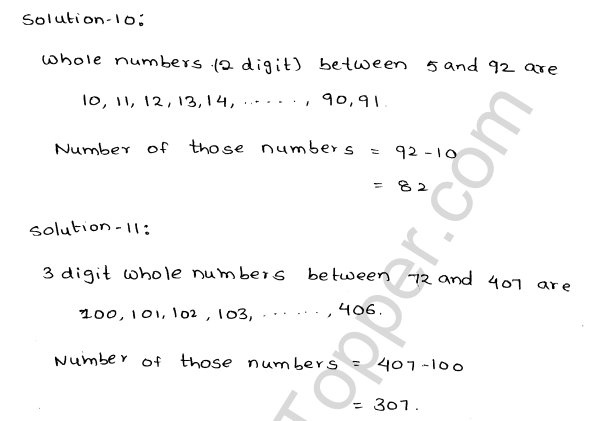 Solution-10:
Whole numbers (2 digit) between 5 and 92 are
10, 11, 12, 13, 14, ......, 90, 91.
Number of those numbers = 92-10
= 82
Solution-11:
3 digit whole numbers between 72 and 407 are
100, 101, 102, 103, ......, 406.
Number of those numbers = 407-100
= 307.
Topper.com